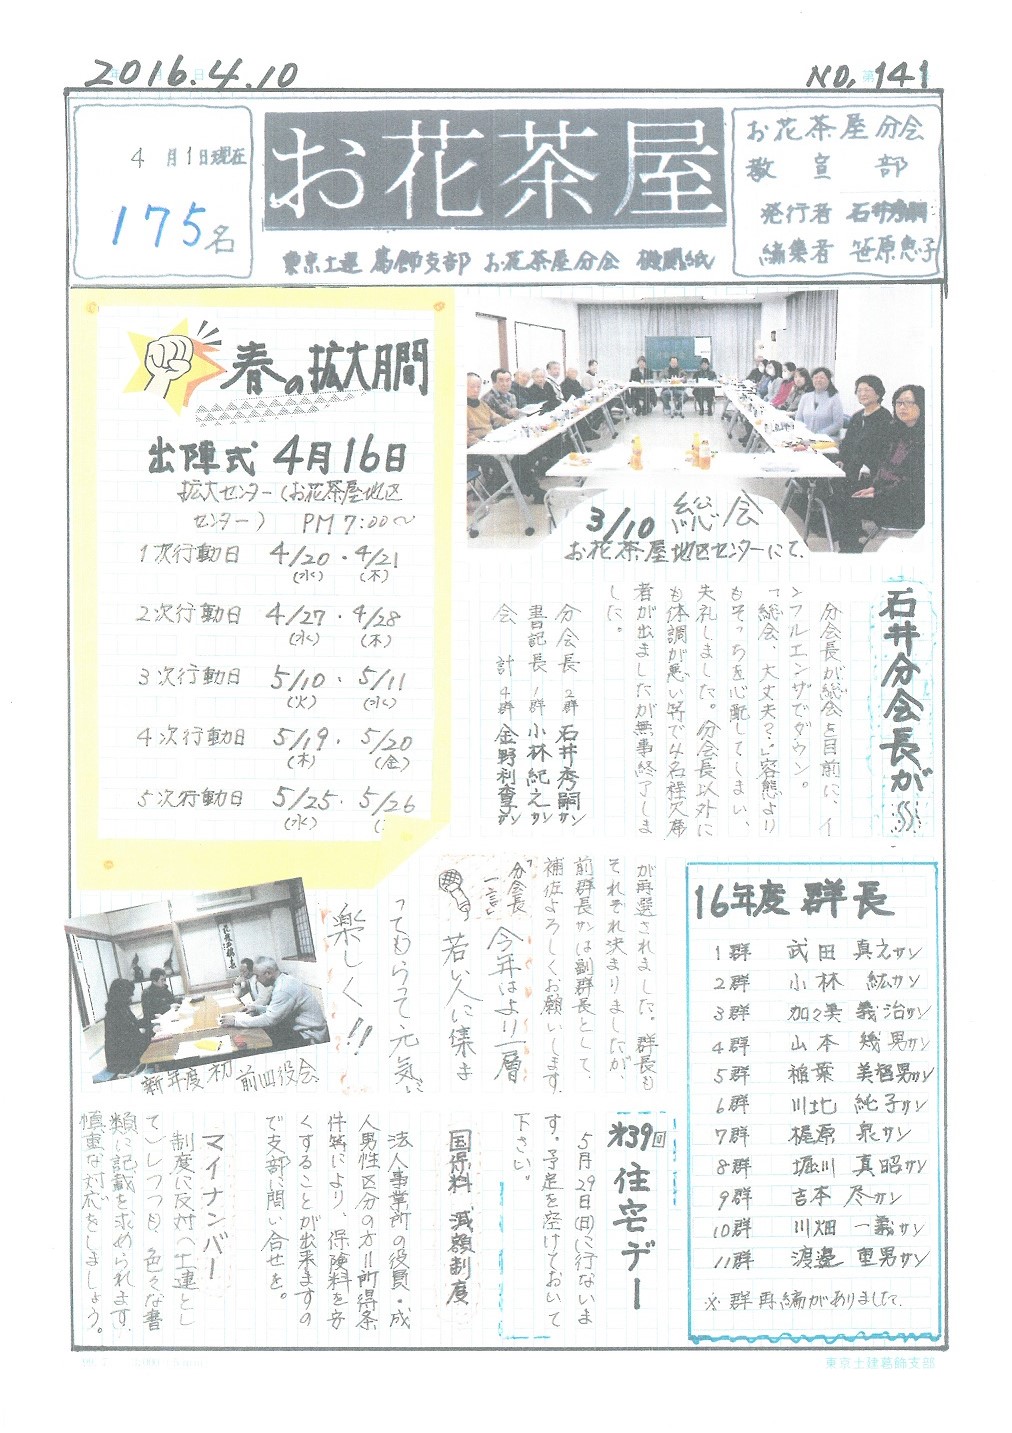 2016.4.10
NO. 141
4月1日現在
175名
お花茶屋
東京土建 葛飾支部 お花茶屋分会 機関紙
お花茶屋分会
教宣部
発行者 石井秀嗣
編集者 笹原恵子
春の拡大月間
出陣式 4月16日
拡大センター(お花茶屋地区
センター) PM7:00〜
1次行動日 4/20・4/21
(水) (木)
2次行動日 4/27・4/28
(水) (木)
3次行動日 5/10・5/11
(火) (水)
4次行動日 5/19・5/20
(木) (金)
5次行動日 5/25・5/26
(水)
3/10 総会
お花茶屋地区センターにて、
石井分会長が
分会長が総会を目前に、イ
ンフルエンザでダウン。
「総会、大丈夫?」容態より
もそっちを心配してしまい、
失礼しました。分会長以外に
も体調が悪い等で4名様欠席
者が出ましたが無事終了しま
した。
分会長 2群 石井秀嗣サン
書記長 1群 小林紀之サン
会計 4群 金野利
が再選されました。群長も
それぞれ決まりましたが、
前群長サンは副群長として、
補佐よろしくお願いします。
分会長
一言
今年はより一層
若い人に集ま
ってもらって元気に
楽しく!!
新年度初 前四役会
16年度 群長
1群 武田 真えサン
2群 小林 紘サン
3群 加々美 義治サン
4群 山本 幾男サン
5群 稲葉 美栖男サン
6群 川北 純子サン
7群 梶原 泉サン
8群 堀川 真昭サン
9群 吉本 サン
10群 川畑 一義サン
11群 渡邉 重男サン
※群再編がありました。
第39回
住宅デー
5月29日(日)に行ないま
す。予定を空けておいて
下さい。
国保料 減額制度
法人事業所の役員・成
人男性区分の方!!所得条
件等により、保険料を安
くすることが出来ますの
で支部に問い合せを。
マイナンバー
制度に反対(土建とし
て)しつつも、色々な書
類に記載を求められます、
慎重な対応をしましょう。
東京土建葛飾支部